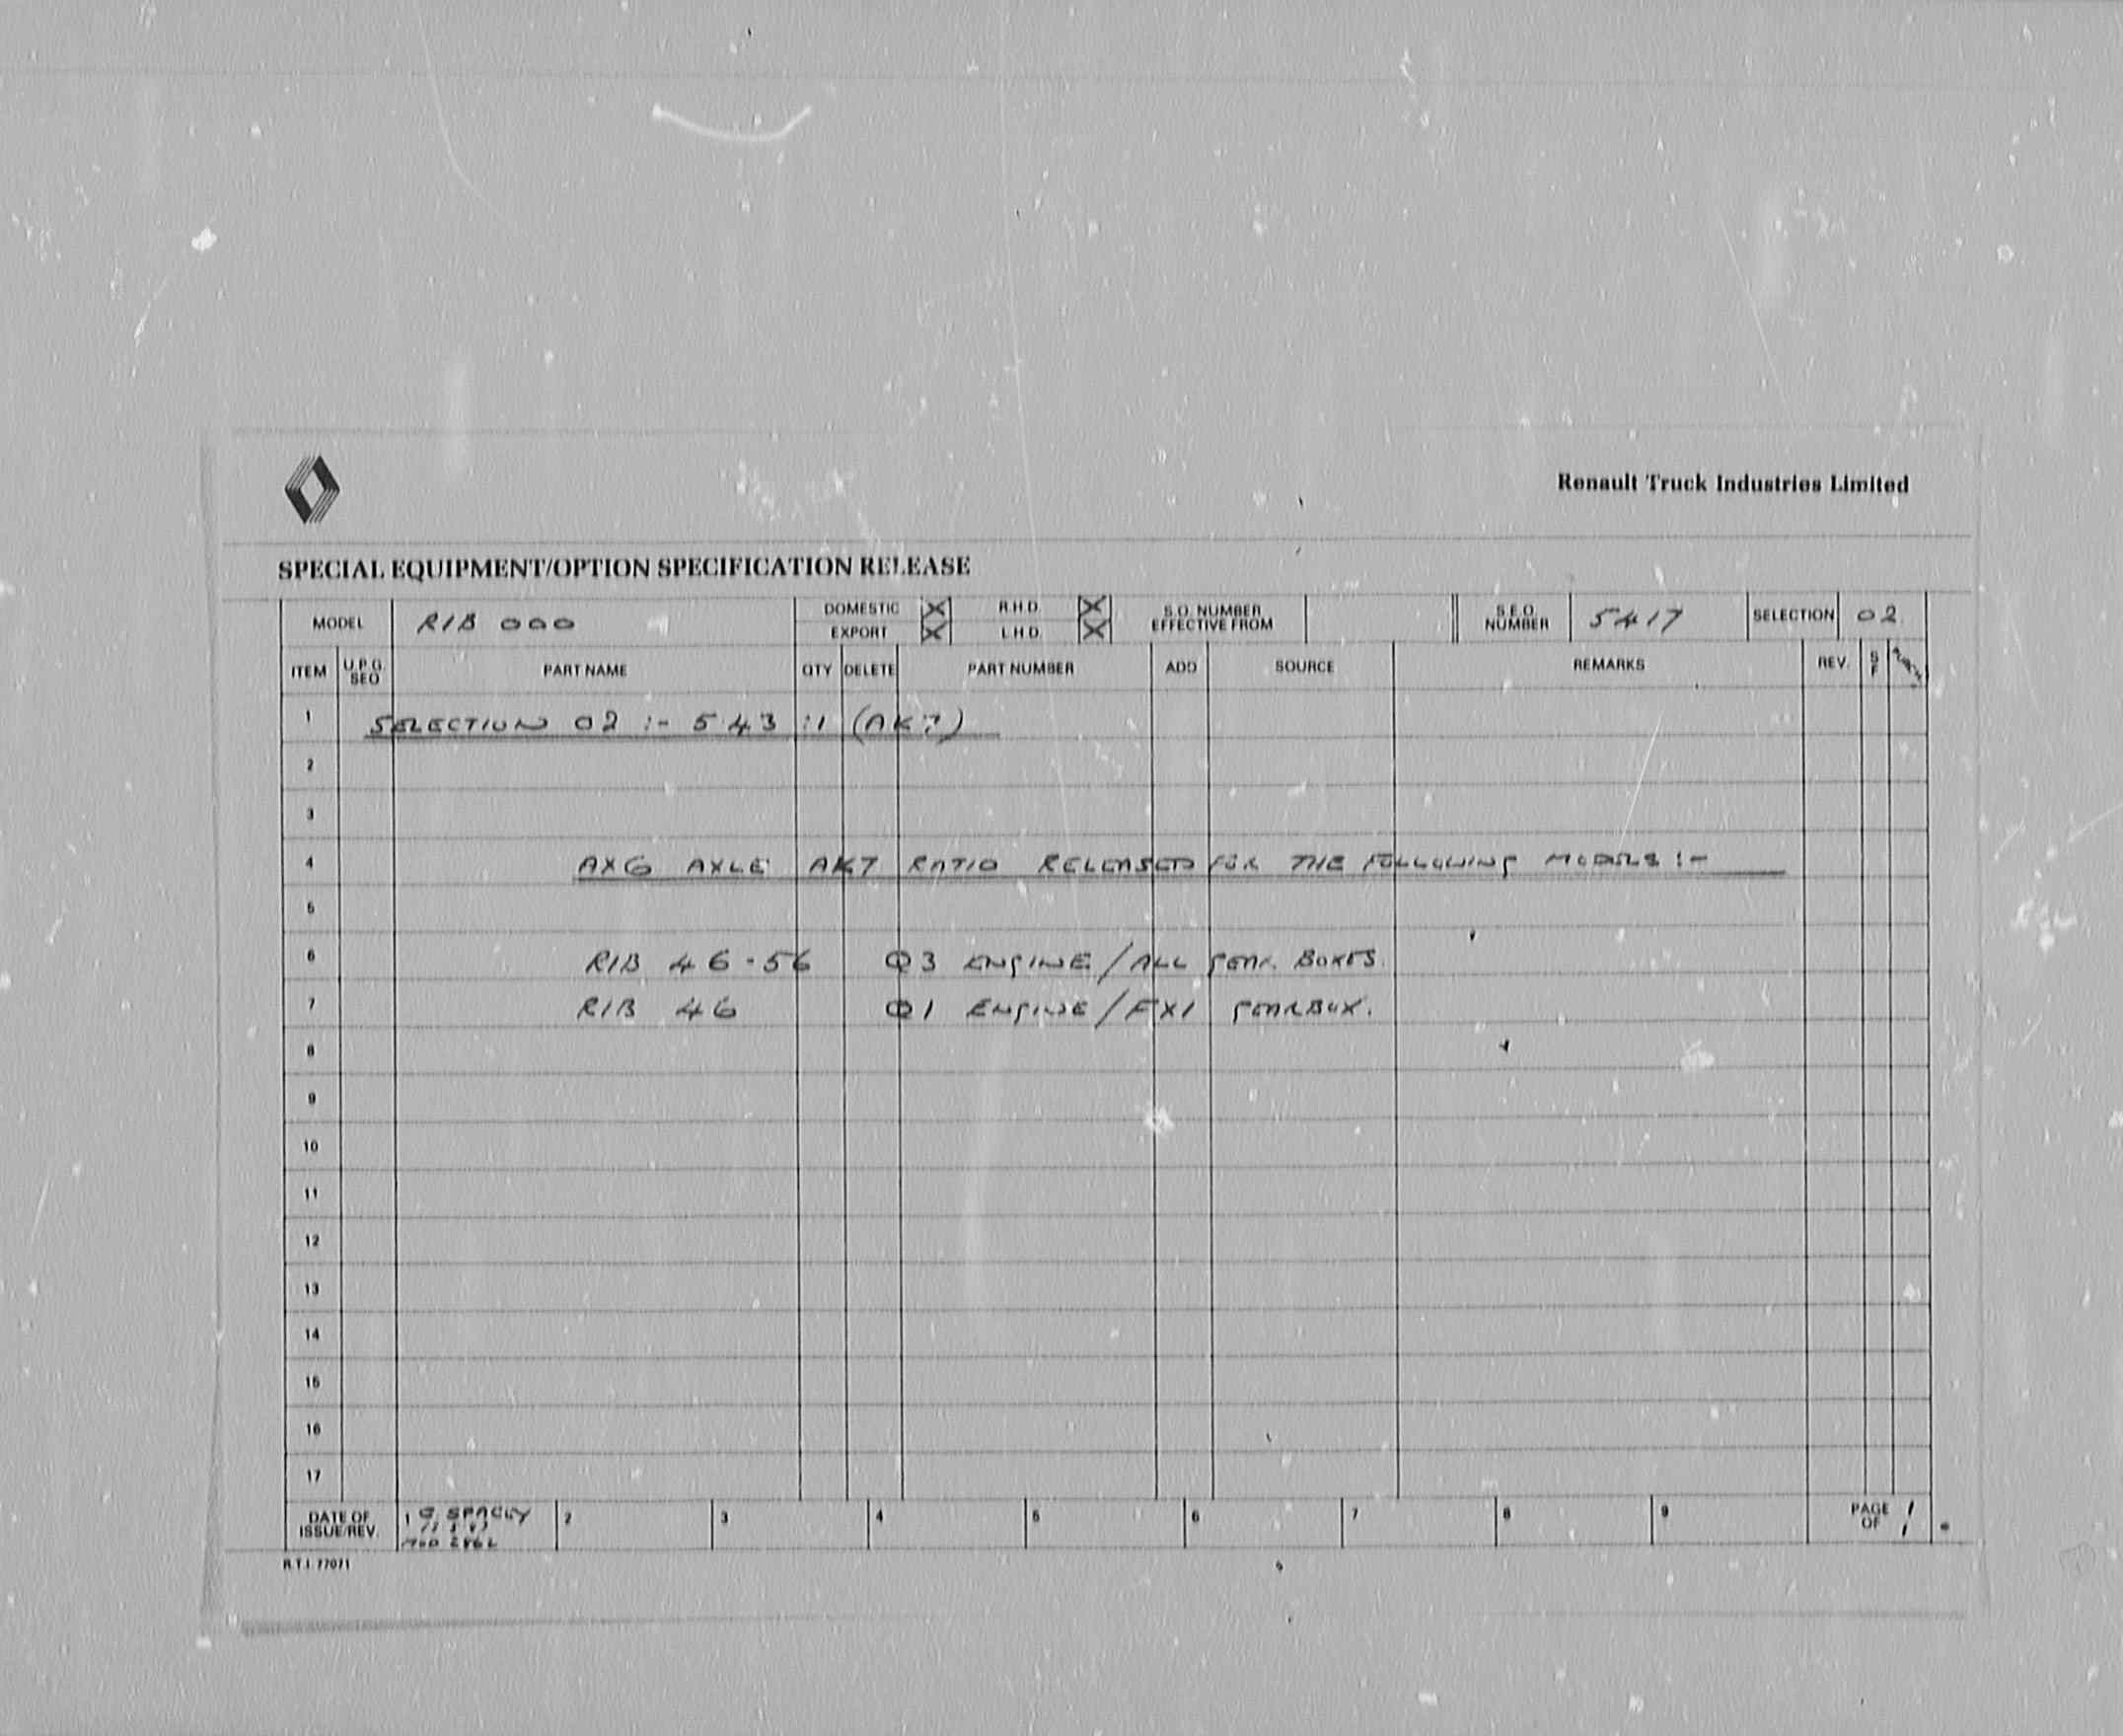 Renault Truck Industries Limited
SPECIAL EQUIPMENT/OPTION SPECIFICATION RELEASE
MODEL RIB 000 DOMESTIC X R.H.D. X S.O. NUMBER EFFECTIVE FROM S.E.O. NUMBER 5417 SELECTION 02
EXPORT X L.H.D. X
ITEM U.P.G. SEQ PART NAME QTY DELETE PART NUMBER ADD SOURCE REMARKS REV. S F
1 SELECTION 02 :- 5.43 :1 (AK7)
2
3
4 AXG AXLE AK7 RATIO RELEASED FOR THE FOLLOWING MODELS :-
5
6 RIB 46-56 Q3 ENGINE/ALL GEAR BOXES.
7 RIB 46 Q1 ENGINE/FX1 GEARBOX.
8
9
10
11
12
13
14
15
16
17
DATE OF ISSUE/REV. 1 G. SPACEY 2 3 4 5 6 7 8 9 PAGE 1 OF 1
R.T.I. 77071